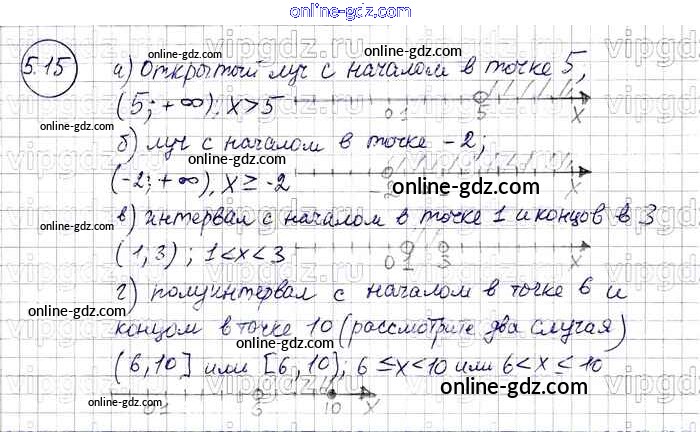 online-gdz.com
5.15
а) Открытый луч с началом в точке 5,
online-gdz.com
(5; +∞), x > 5
0 1 5 X
online-gdz.com
б) луч с началом в точке -2;
(-2; +∞), x ≥ -2
-2 online-gdz.com
online-gdz.com
в) интервал с началом в точке 1 и концов в 3
(1, 3) ; 1 < x < 3
0 1 3 X
online-gdz.com
г) полуинтервал с началом в точке 6 и
online-gdz.com
концом в точке 10 (рассмотрите два случая)
(6, 10] или [6, 10), 6 ≤ x < 10 или 6 < x ≤ 10
online-gdz.com online-gdz.com
0 1 10 X
online-gdz.com